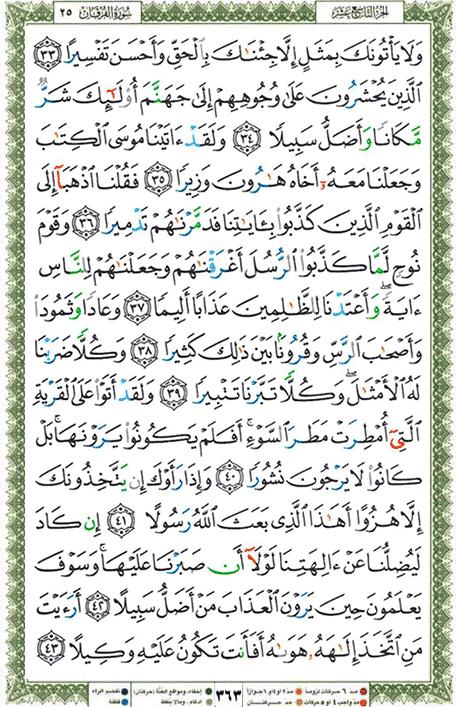 الجزء التاسع عشر سُورَةُ الفُرْقَان ٢٥
وَلَا يَأْتُونَكَ بِمَثَلٍ إِلَّا جِئْنَٰكَ بِٱلْحَقِّ وَأَحْسَنَ تَفْسِيرًا ٣٣
ٱلَّذِينَ يُحْشَرُونَ عَلَىٰ وُجُوهِهِمْ إِلَىٰ جَهَنَّمَ أُو۟لَٰٓئِكَ شَرٌّ
مَّكَانًا وَأَضَلُّ سَبِيلًا ٣٤ وَلَقَدْ ءَاتَيْنَا مُوسَى ٱلْكِتَٰبَ
وَجَعَلْنَا مَعَهُۥٓ أَخَاهُ هَٰرُونَ وَزِيرًا ٣٥ فَقُلْنَا ٱذْهَبَآ إِلَى
ٱلْقَوْمِ ٱلَّذِينَ كَذَّبُوا۟ بِـَٔايَٰتِنَا فَدَمَّرْنَٰهُمْ تَدْمِيرًا ٣٦ وَقَوْمَ
نُوحٍ لَّمَّا كَذَّبُوا۟ ٱلرُّسُلَ أَغْرَقْنَٰهُمْ وَجَعَلْنَٰهُمْ لِلنَّاسِ
ءَايَةً ۖ وَأَعْتَدْنَا لِلظَّٰلِمِينَ عَذَابًا أَلِيمًا ٣٧ وَعَادًا وَثَمُودَا۟
وَأَصْحَٰبَ ٱلرَّسِّ وَقُرُونًۢا بَيْنَ ذَٰلِكَ كَثِيرًا ٣٨ وَكُلًّا ضَرَبْنَا
لَهُ ٱلْأَمْثَٰلَ ۖ وَكُلًّا تَبَّرْنَا تَتْبِيرًا ٣٩ وَلَقَدْ أَتَوْا۟ عَلَى ٱلْقَرْيَةِ
ٱلَّتِىٓ أُمْطِرَتْ مَطَرَ ٱلسَّوْءِ ۚ أَفَلَمْ يَكُونُوا۟ يَرَوْنَهَا ۚ بَلْ
كَانُوا۟ لَا يَرْجُونَ نُشُورًا ٤٠ وَإِذَا رَأَوْكَ إِن يَتَّخِذُونَكَ
إِلَّا هُزُوًا أَهَٰذَا ٱلَّذِى بَعَثَ ٱللَّهُ رَسُولًا ٤١ إِن كَادَ
لَيُضِلُّنَا عَنْ ءَالِهَتِنَا لَوْلَآ أَن صَبَرْنَا عَلَيْهَا ۚ وَسَوْفَ
يَعْلَمُونَ حِينَ يَرَوْنَ ٱلْعَذَابَ مَنْ أَضَلُّ سَبِيلًا ٤٢ أَرَءَيْتَ
مَنِ ٱتَّخَذَ إِلَٰهَهُۥ هَوَىٰهُ أَفَأَنتَ تَكُونُ عَلَيْهِ وَكِيلًا ٤٣
مد ٦ حركات لزوماً مد ٢ او ٤ او ٦ جوازاً ٣٦٣ إخفاء، ومواقع الغنة (حركتان) تفخيم الراء
مد واجب ٤ او ٥ حركات مد حركتان إدغام، ومالا يلفظ قلقلة